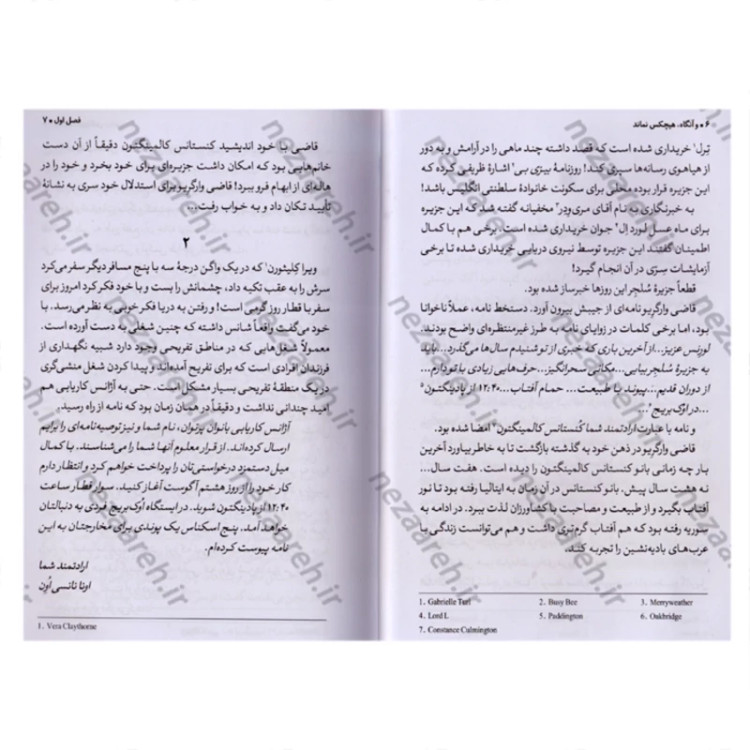 ۶ • و آنگاه، هیچکس نماند
تِرل۱ خریداری شده است که قصد داشته چند ماهی را در آرامش و به دور
از هیاهوی رسانه‌ها سپری کند! روزنامهٔ بیزی بی۲ اشارهٔ ظریفی کرده که
این جزیره قرار بوده محلی برای سکونت خانوادهٔ سلطنتی انگلیس باشد!
به خبرنگاری به نام آقای مری‌ودِر۳ مخفیانه گفته شد که این جزیره
برای ماه عسل لورد اِل۴ جوان خریداری شده است. برخی هم با کمال
اطمینان گفتند این جزیره توسط نیروی دریایی خریداری شده تا برخی
آزمایشات سِرّی در آن انجام گیرد!
قطعاً جزیرهٔ سُلجِر این روزها خبرساز شده بود.
قاضی وارگریو نامه‌ای از جیبش بیرون آورد. دستخط نامه، عملاً ناخوانا
بود، اما برخی کلمات در زوایای نامه به طرز غیرمنتظره‌ای واضح بودند.
لورنس عزیز... از آخرین باری که خبری از تو شنیدم سال‌ها می‌گذرد... باید
به جزیرهٔ سُلجِر بیایی... مکانی سحرانگیز... حرف‌هایی زیادی با تو دارم...
از دوران قدیم... پیوند با طبیعت... حمام آفتاب... ۱۲:۴۰ از پادینگتون۵
... در اوُک بریج۶...
و نامه با عبارت ارادتمند شما کُنستانس کالمینگتون۷ امضا شده بود.
قاضی وارگریو در ذهن خود به گذشته بازگشت تا به خاطر بیاورد آخرین
بار چه زمانی بانو کنستانس کالمینگتون را دیده است. هفت سال...
نه هشت سال پیش. بانو کنستانس در آن زمان به ایتالیا رفته بود تا نور
آفتاب بگیرد و از طبیعت و مصاحبت با کشاورزان لذت ببرد. در ادامه به
سوریه رفته بود که هم آفتاب گرم‌تری داشت و هم می‌توانست زندگی با
عرب‌های بادیه‌نشین را تجربه کند.
1. Gabrielle Turl 2. Busy Bee 3. Merryweather
4. Lord L 5. Paddington 6. Oakbridge
7. Constance Culmington
فصل اول • ۷
قاضی با خود اندیشید کنستانس کالمینگتون دقیقاً از آن دست
خانم‌هایی بود که امکان داشت جزیره‌ای برای خود بخرد و خود را در
هاله‌ای از ابهام فرو ببرد! قاضی وارگریو برای استدلال خود سری به نشانهٔ
تأیید تکان داد و به خواب رفت...
۲
ویرا کِلیثورن۱ که در یک واگن درجهٔ سه با پنج مسافر دیگر سفر می‌کرد
سرش را به عقب تکیه داد، چشمانش را بست و با خود فکر کرد امروز برای
سفر با قطار روز گرمی است! و رفتن به دریا فکر خوبی به نظر می‌رسد. با
خود می‌گفت واقعاً شانس داشته که چنین شغلی به دست آورده است.
معمولاً شغل‌هایی که در مناطق تفریحی وجود دارد شبیه نگهداری از
فرزندان افرادی است که برای تفریح آمده‌اند و پیدا کردن شغل منشی‌گری
در یک منطقهٔ تفریحی بسیار مشکل است. حتی به آژانس کاریابی هم
امید چندانی نداشت و دقیقاً در همان زمان بود که نامه از راه رسید.
آژانس کاریابی بانوان پرتوان، نام شما و نیز توصیه‌نامه‌ای را برایم
ارسال کرده‌اند. از قرار معلوم آنها شما را می‌شناسند. با کمال
میل دستمزد درخواستی‌تان را پرداخت خواهم کرد و انتظار دارم
کار خود را از روز هشتم آگوست آغاز کنید. سوار قطار ساعت
۱۲:۴۰ از پادینگتون شوید. در ایستگاه اوُک بریج فردی به دنبالتان
خواهد آمد. پنج اسکناس یک پوندی برای مخارجتان به این
نامه پیوست کرده‌ام.
ارادتمند شما
اونا نانسی اُوِن
1. Vera Claythorne
nezaareh.ir